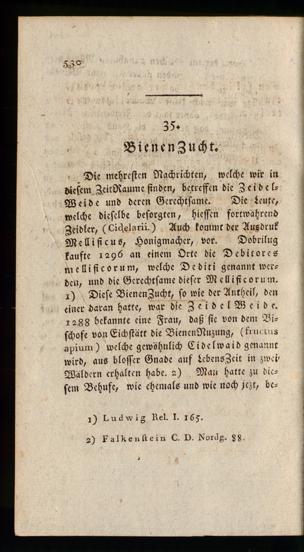 530
35.
BienenZucht.
Die mehresten Nachrichten, welche wir in
diesem ZeitRaume finden, betreffen die Zeidel-
Weide und deren Gerechtsame. Die Leute,
welche dieselbe besorgten, hiessen fortwährend
Zeidler, (Cidelarii.) Auch kommt der Ausdruk
Mellificus, Honigmacher, vor. Dobrilug
kaufte 1296 an einem Orte die Debitores
mellificorum, welche Dediti genannt wer-
den, und die Gerechtsame dieser Mellificorum.
1) Diese BienenZucht, so wie der Antheil, den
einer daran hatte, war die Zeidel Weide.
1288 bekannte eine Frau, daß sie von dem Bi-
schofe von Eichstätt die BienenNuzung, (fructus
apium) welche gewöhnlich Cidelwaid genannt
wird, aus blosser Gnade auf LebensZeit in zwei
Wäldern erhalten habe. 2) Man hatte zu die-
sem Behufe, wie ehemals und wie noch jezt, be-
1) Ludwig Rel. I. 165.
2) Falkenstein C. D. Nordg. 88.